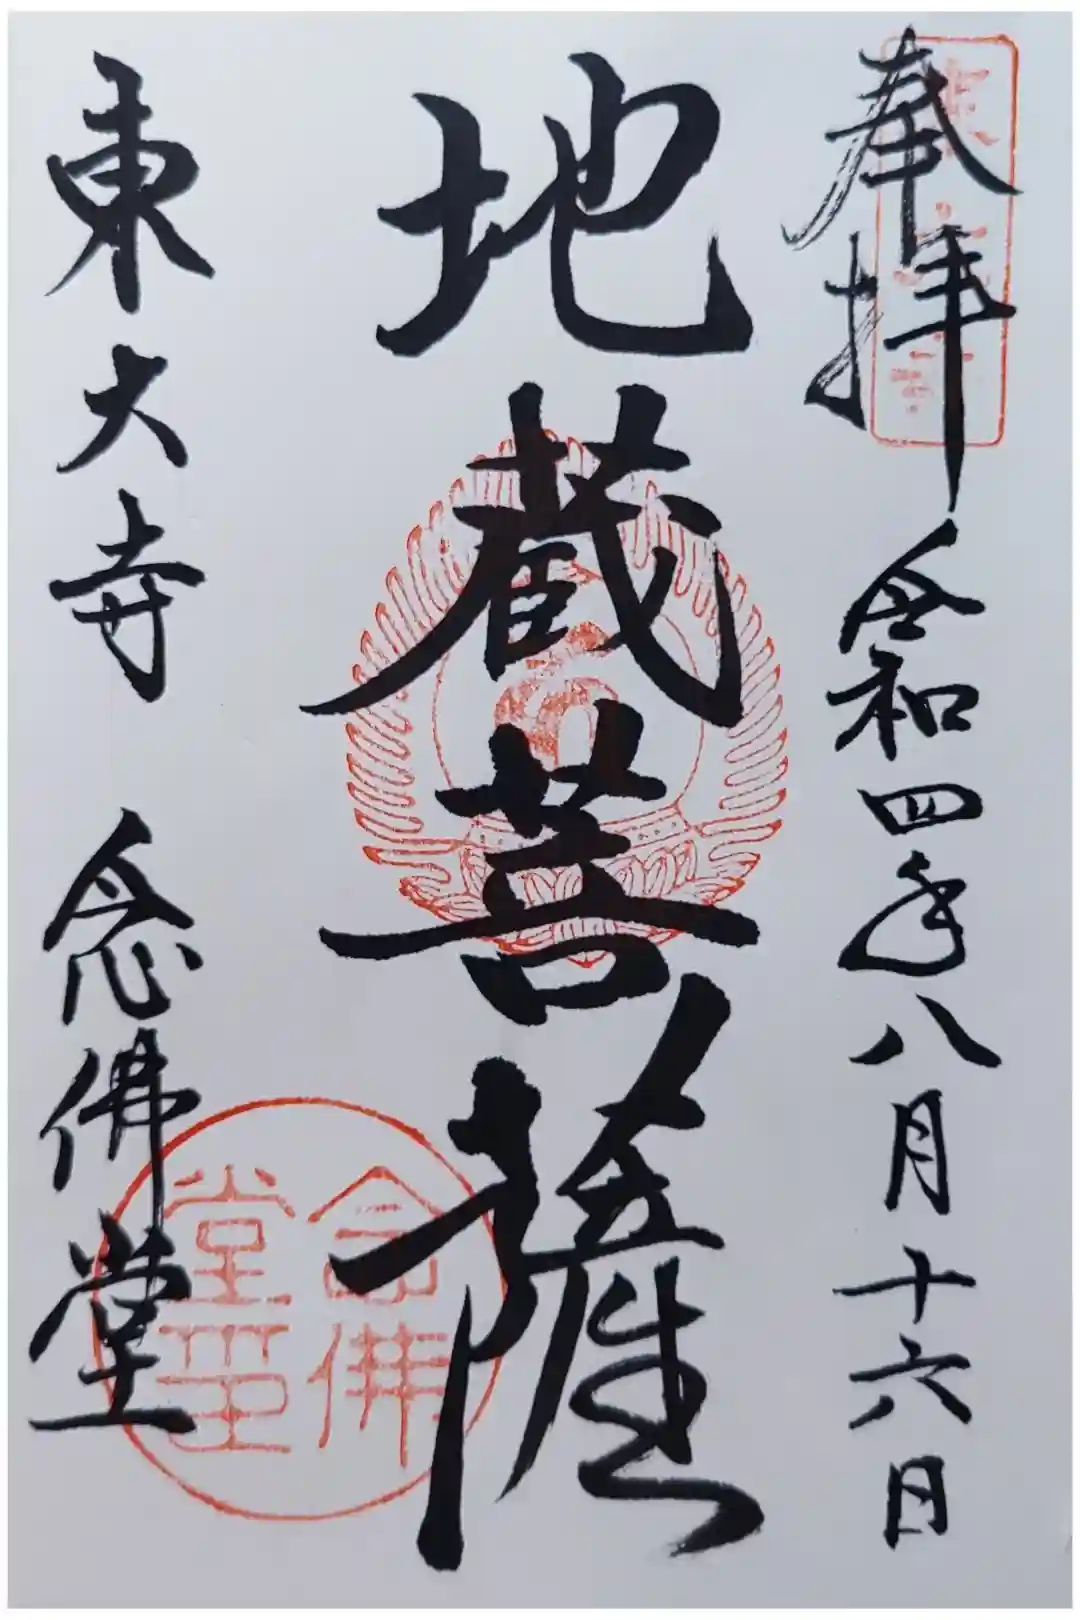 奉拝
令和四年八月十六日
地蔵菩薩
東大寺 念佛堂
念佛堂印